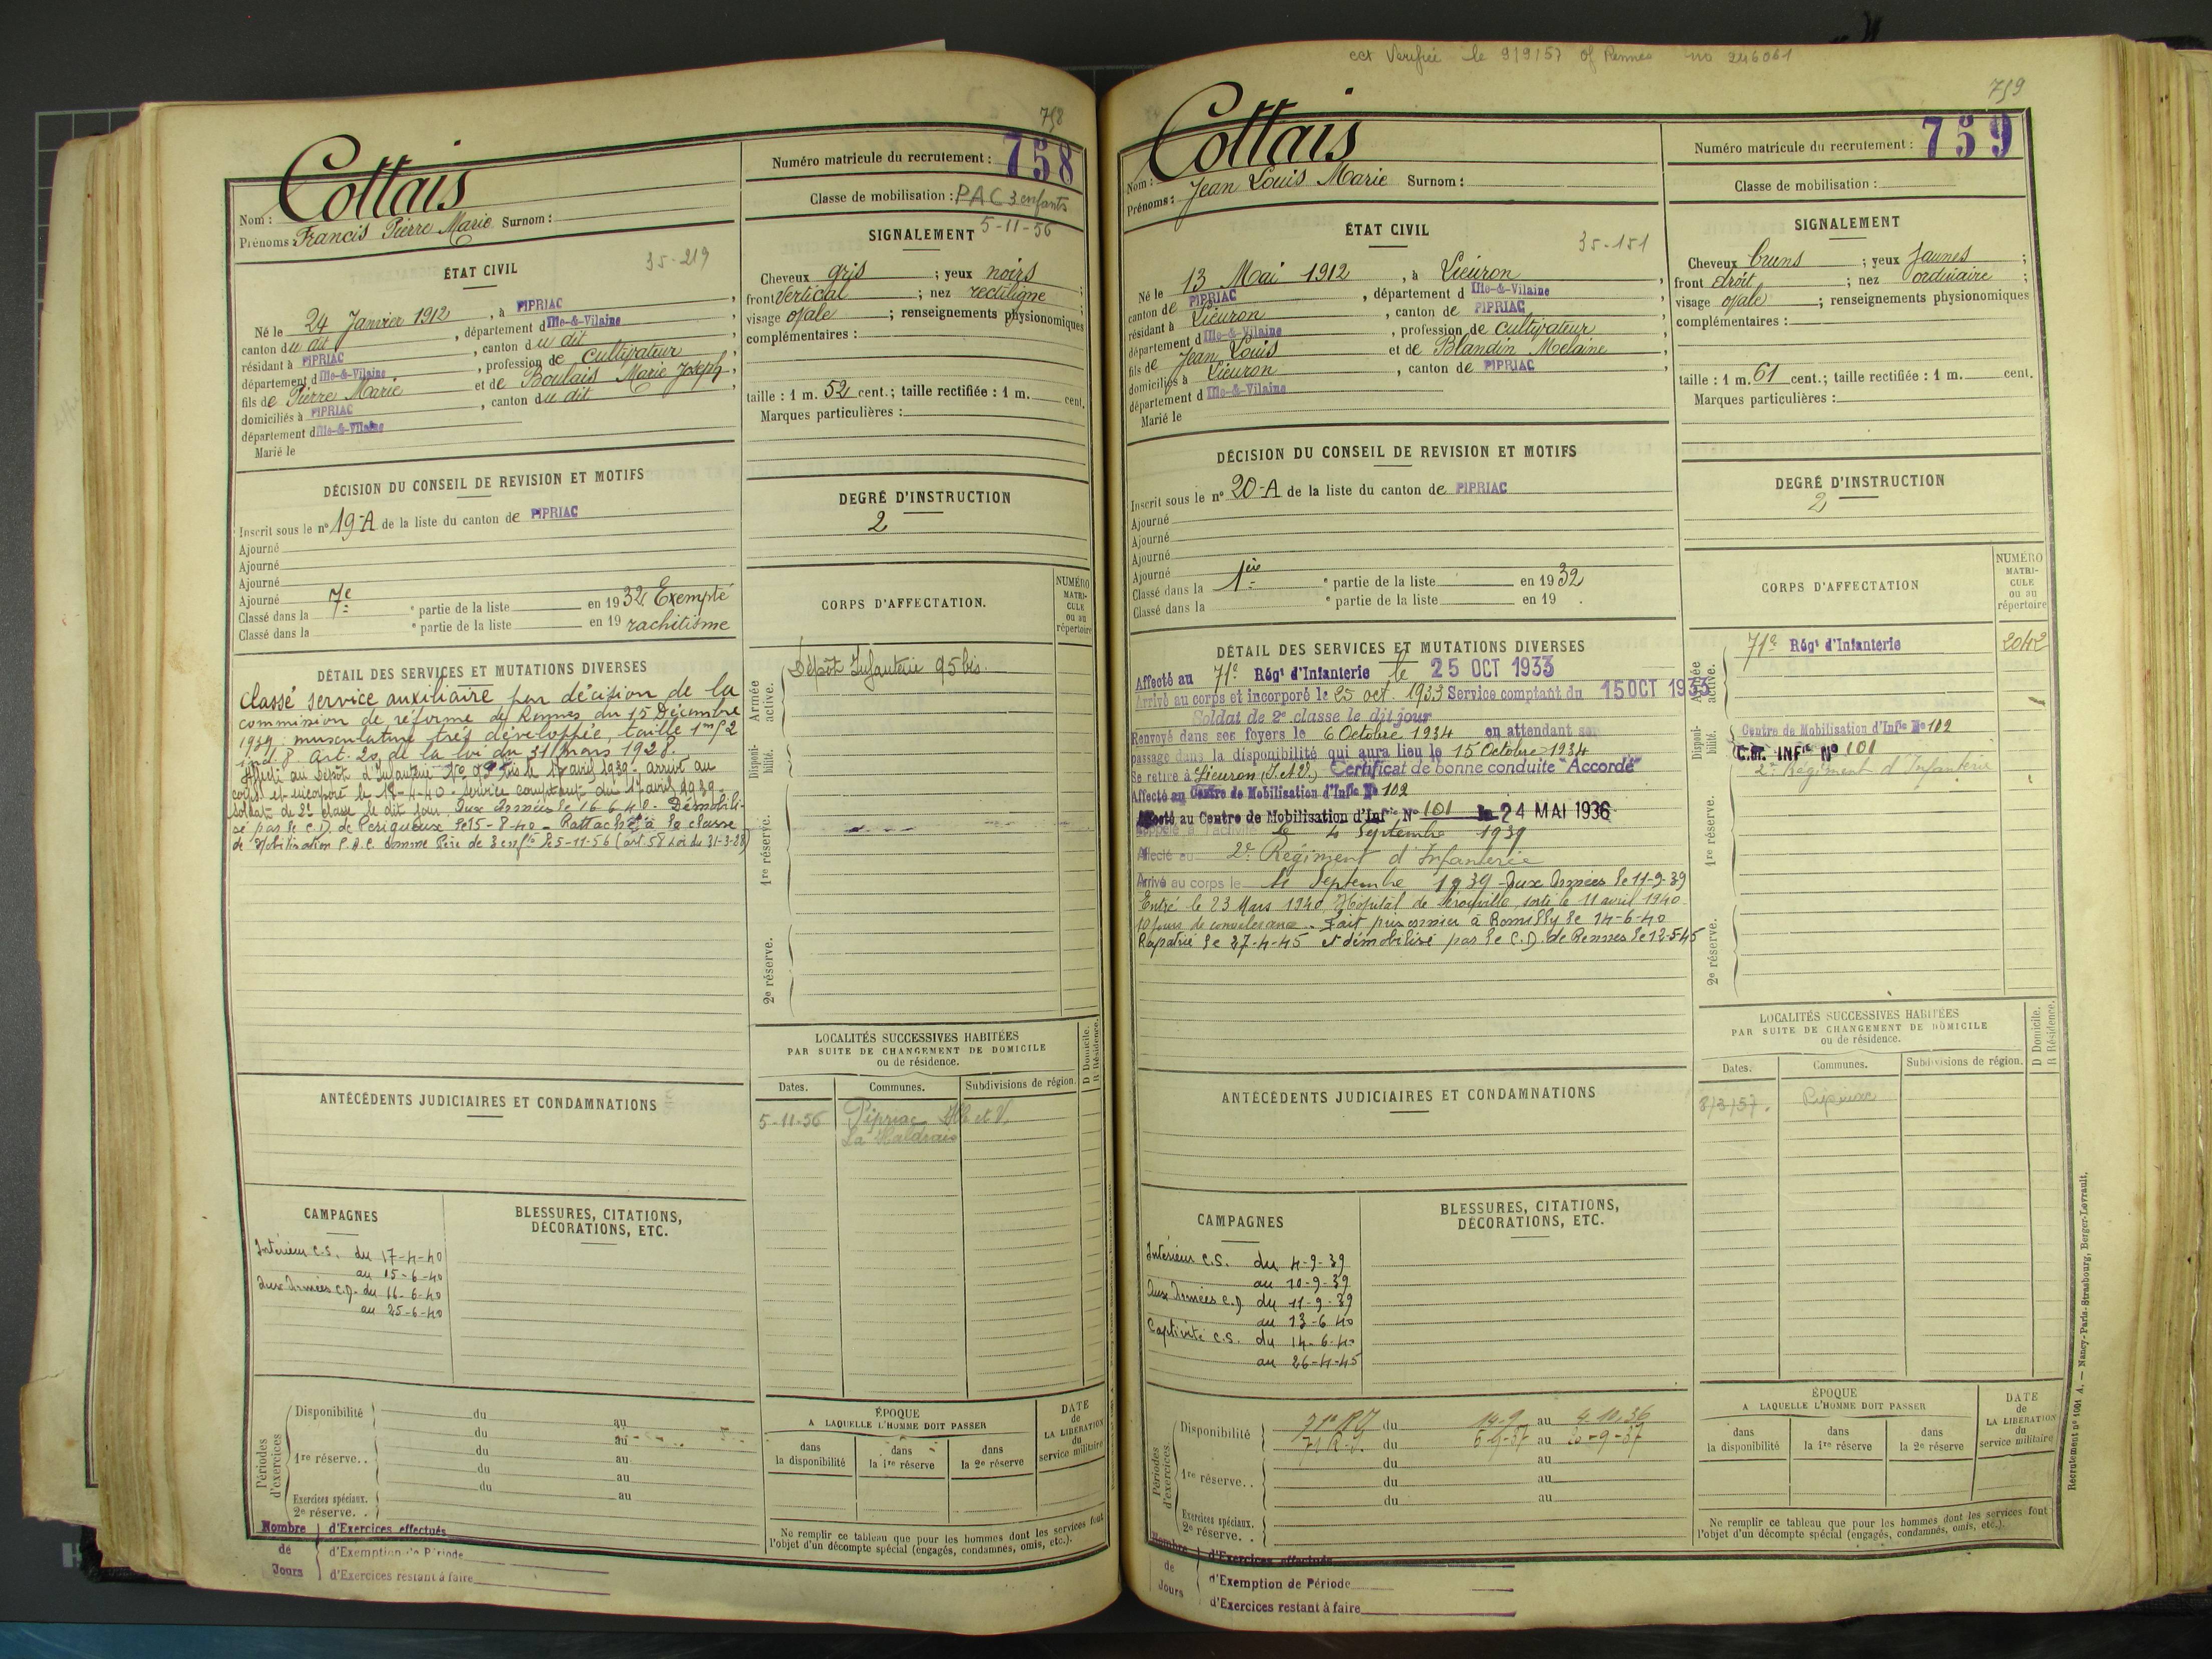 758
Cottais
Numéro matricule du recrutement : 758
Nom :
Classe de mobilisation : PAC 3 enfants
5-11-56
Prénoms : Francis Pierre Marie Surnom :
ÉTAT CIVIL
35-219
Né le 24 Janvier 1912, à PIPRIAC,
canton du dit, département d Ille-&-Vilaine,
résidant à PIPRIAC, canton du dit,
département d Ille-&-Vilaine, profession de Cultivateur,
fils de Pierre Marie et de Boulais Marie Joseph,
domiciliés à PIPRIAC, canton du dit,
département d Ille-&-Vilaine
Marié le
SIGNALEMENT
Cheveux gris ; yeux noirs ;
front Vertical ; nez rectiligne ;
visage ovale ; renseignements physionomiques
complémentaires :
taille : 1 m. 52 cent.; taille rectifiée : 1 m. cent.
Marques particulières :
DÉCISION DU CONSEIL DE REVISION ET MOTIFS
Inscrit sous le nº 19-A de la liste du canton de PIPRIAC
Ajourné
Ajourné
Ajourné
Ajourné
Classé dans la 7e partie de la liste en 1932 Exempté
Classé dans la e partie de la liste en 19 rachitisme
DEGRÉ D'INSTRUCTION
2
DÉTAIL DES SERVICES ET MUTATIONS DIVERSES
Classé service auxiliaire par décision de la
commission de réforme de Rennes du 15 Décembre
1939 : musculature très développée, taille 1m52
ind. 8. Art. 20 de la loi du 31 mars 1928.
Affecté au Dépôt d'Infanterie No 95 bis le avril 1939. arrivé au
corps et incorporé le 18-4-40. Service comptant du 17 avril 1939.
Soldat de 2e classe le dit jour. Aux Armées le 16-6-40. Démobili-
sé par le C.D. de Périgueux le 15-8-40. Rattaché à la classe
de Mobilisation P.A.C. comme Père de 3 enfts le 5-11-56 (art. 58 Loi du 31-3-28)
CORPS D'AFFECTATION.
NUMÉRO MATRI-CULE ou au répertoire
Armée active.
Dépôt Infanterie 95 bis.
Disponi-bilité.
1re réserve.
2e réserve.
LOCALITÉS SUCCESSIVES HABITÉES
PAR SUITE DE CHANGEMENT DE DOMICILE
ou de résidence.
D Domicile. R Résidence.
Dates. Communes. Subdivisions de région.
5-11-56 Pipriac Ille et V.
La Haldrais
ANTÉCÉDENTS JUDICIAIRES ET CONDAMNATIONS
CAMPAGNES
Intérieur C.S. du 17-4-40
au 15-6-40
Aux Armées C.D. du 16-6-40
au 25-6-40
BLESSURES, CITATIONS,
DÉCORATIONS, ETC.
Périodes d'exercices
Disponibilité du au
du au
1re réserve.. du au
du au
du au
Exercices spéciaux.
2e réserve..
ÉPOQUE
A LAQUELLE L'HOMME DOIT PASSER
dans la disponibilité
dans la 1re réserve
dans la 2e réserve
DATE de LA LIBÉRATION du service militaire
Ne remplir ce tableau que pour les hommes dont les services font
l'objet d'un décompte spécial (engagés, condamnés, omis, etc.).
Nombre de Jours
d'Exercices effectués
d'Exemption de Période
d'Exercices restant à faire
cct Verifiée le 9/9/57 of Rennes no 246061
759
Cottais
Numéro matricule du recrutement : 759
Nom :
Classe de mobilisation :
Prénoms : Jean Louis Marie Surnom :
ÉTAT CIVIL
35-151
Né le 13 Mai 1912, à Lieuron,
canton de PIPRIAC, département d Ille-&-Vilaine,
résidant à Lieuron, canton de PIPRIAC,
département d Ille-&-Vilaine, profession de Cultivateur,
fils de Jean Louis et de Blandin Melaine,
domiciliés à Lieuron, canton de PIPRIAC,
département d Ille-&-Vilaine
Marié le
SIGNALEMENT
Cheveux bruns ; yeux Jaunes ;
front droit ; nez ordinaire ;
visage ovale ; renseignements physionomiques
complémentaires :
taille : 1 m. 61 cent.; taille rectifiée : 1 m. cent.
Marques particulières :
DÉCISION DU CONSEIL DE REVISION ET MOTIFS
Inscrit sous le nº 20-A de la liste du canton de PIPRIAC
Ajourné
Ajourné
Ajourné
Ajourné
Classé dans la 1ère e partie de la liste en 1932
Classé dans la e partie de la liste en 19 .
DEGRÉ D'INSTRUCTION
2
DÉTAIL DES SERVICES ET MUTATIONS DIVERSES
Affecté au 71e Régt d'Infanterie le 25 OCT 1933
Arrivé au corps et incorporé le 25 oct. 1933 Service comptant du 15 OCT 1933
Soldat de 2e classe le dit jour
Renvoyé dans ses foyers le 6 Octobre 1934 en attendant son
passage dans la disponibilité qui aura lieu le 15 Octobre 1934
Se retire à Lieuron (I. et V.) Certificat de bonne conduite "Accordé"
Affecté au Centre de Mobilisation d'Infie No 102
Affecté au Centre de Mobilisation d'Infrie No 101 le 24 MAI 1936
Rappelé à l'activité le 4 Septembre 1939
Affecté au 2e Régiment d'Infanterie
Arrivé au corps le 4 Septembre 1939 - Aux Armées le 11-9-39
Entré le 23 Mars 1940 Hôpital de sorti le 11 avril 1940.
10 jours de convalescence. Fait prisonnier à Romilly le 14-6-40
Rapatrié le 27-4-45 et démobilisé par le C.D. de Rennes le 12-5-45
CORPS D'AFFECTATION
NUMÉRO MATRI-CULE ou au répertoire
Armée active.
71e Régt d'Infanterie 2042
Disponi-bilité.
Centre de Mobilisation d'Infie No 102
C.M. INFie No 101
2e Régiment d'Infanterie
1re réserve.
2e réserve.
LOCALITÉS SUCCESSIVES HABITÉES
PAR SUITE DE CHANGEMENT DE DOMICILE
ou de résidence.
D Domicile. R Résidence.
Dates. Communes. Subdivisions de région.
8/3/57.
ANTÉCÉDENTS JUDICIAIRES ET CONDAMNATIONS
CAMPAGNES
Intérieur C.S. du 4-9-39
au 10-9-39
Aux Armées C.D du 11-9-39
au 13-6-40
Captivité C.S. du 14-6-40
au 26-4-45
BLESSURES, CITATIONS,
DÉCORATIONS, ETC.
Périodes d'exercices.
Disponibilité 71e R.I. du 14-9 au 4.10.36
71 R.I. du au
1re réserve.. du au
du au
du au
Exercices spéciaux.
2e réserve..
ÉPOQUE
A LAQUELLE L'HOMME DOIT PASSER
dans la disponibilité
dans la 1re réserve
dans la 2e réserve
DATE de LA LIBÉRATION du service militaire
Ne remplir ce tableau que pour les hommes dont les services font
l'objet d'un décompte spécial (engagés, condamnés, omis, etc.).
Nombre de Jours
d'Exercices effectués
d'Exemption de Période
d'Exercices restant à faire
Recrutement nº 1001 A. — Nancy-Paris-Strasbourg, Berger-Levrault.